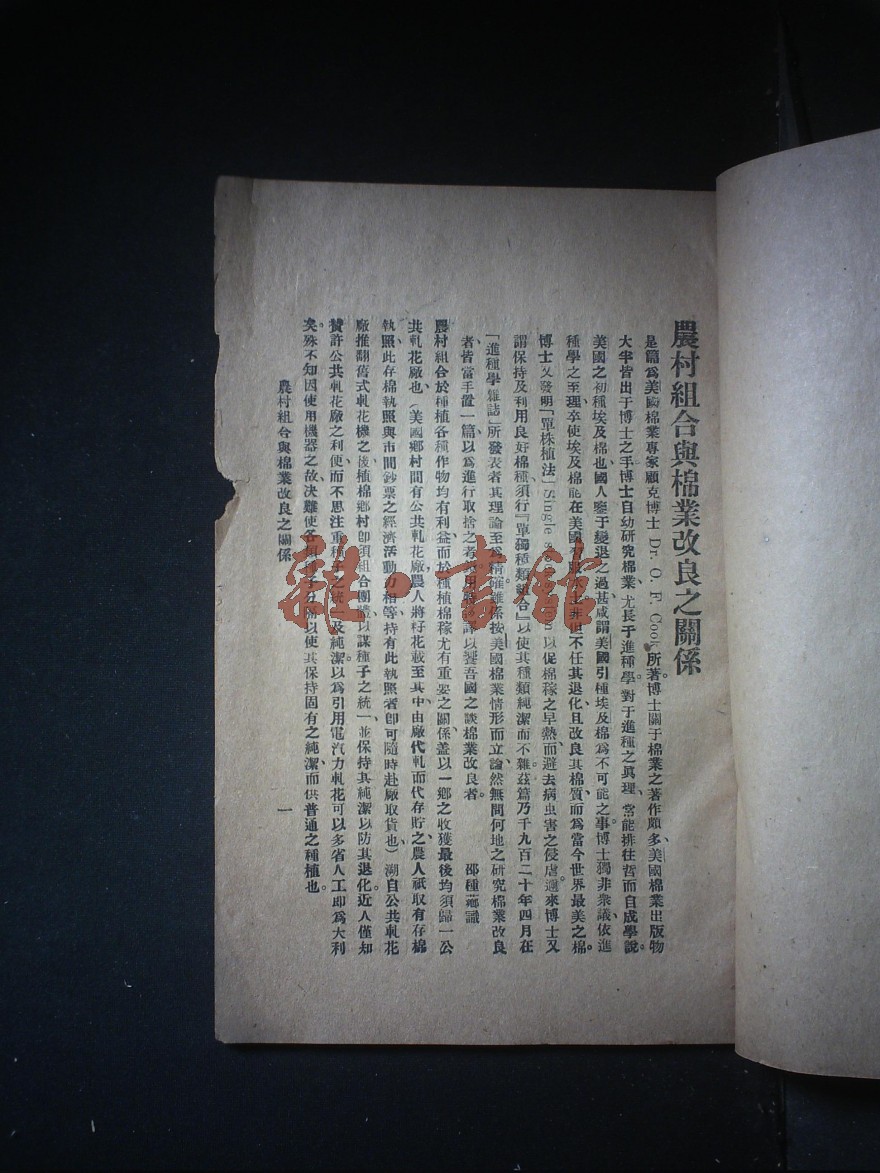 農村組合與棉業改良之關係
是篇爲美國棉業專家顧克博士 Dr. O. F. Cook 所著。博士關于棉業之著作頗多、美國棉業出版物
大半皆出于博士之手、博士自幼研究棉業、尤長于進種學、對于進種之眞理、常能排往哲而自成學說。
美國之初種埃及棉也、國人鑒于變退之過甚、咸謂美國引種埃及棉爲不可能之事、博士獨非衆議、依進
種學之至理、卒使埃及棉能在美國 不任其退化、且改良其棉質、而爲當今世界最美之棉。
博士又發明「單株植法」Single 以促棉稼之早熟、而避去病虫害之侵虐、邇來博士又
謂保持及利用良好棉種、須行「單獨種類組合」以使其種類純潔而不雜、茲篇乃千九百二十年四月在
「進種學雜誌」所發表者、其理論至爲精確、雖係按美國棉業情形而立論、然無間何地之研究棉業改良
者、皆當手置一篇、以爲進行取捨之 以饗吾國之談棉業改良者。
邵種藝識
農村組合於種植各種作物均有利益、而於種植棉稼尤有重要之關係、蓋以一鄉之收獲、最後均須歸一公
共軋花廠也、(美國鄉村間有公共軋花廠、農人將籽花載至其中、由廠代軋而代存貯之、農人祇取有存棉
執照、此存棉執照與市間鈔票之經濟活動力相等、持有此執照者卽可隨時赴廠取貨也)溯自公共軋花
廠推翻舊式軋花機之後、植棉鄉村卽須組合團體以謀種子之統一、並保持其純潔以防其退化、近人僅知
贊許公共軋花廠之利便、而不思注重種子之統一及純潔、以爲引用電汽力軋花可以多省人工、卽爲大利
矣、殊不知因使用機器之故、決難使各 種子分 以使其保持固有之純潔、而供普通之種植也。
農村組合與棉業改良之關係
一
雜·書館